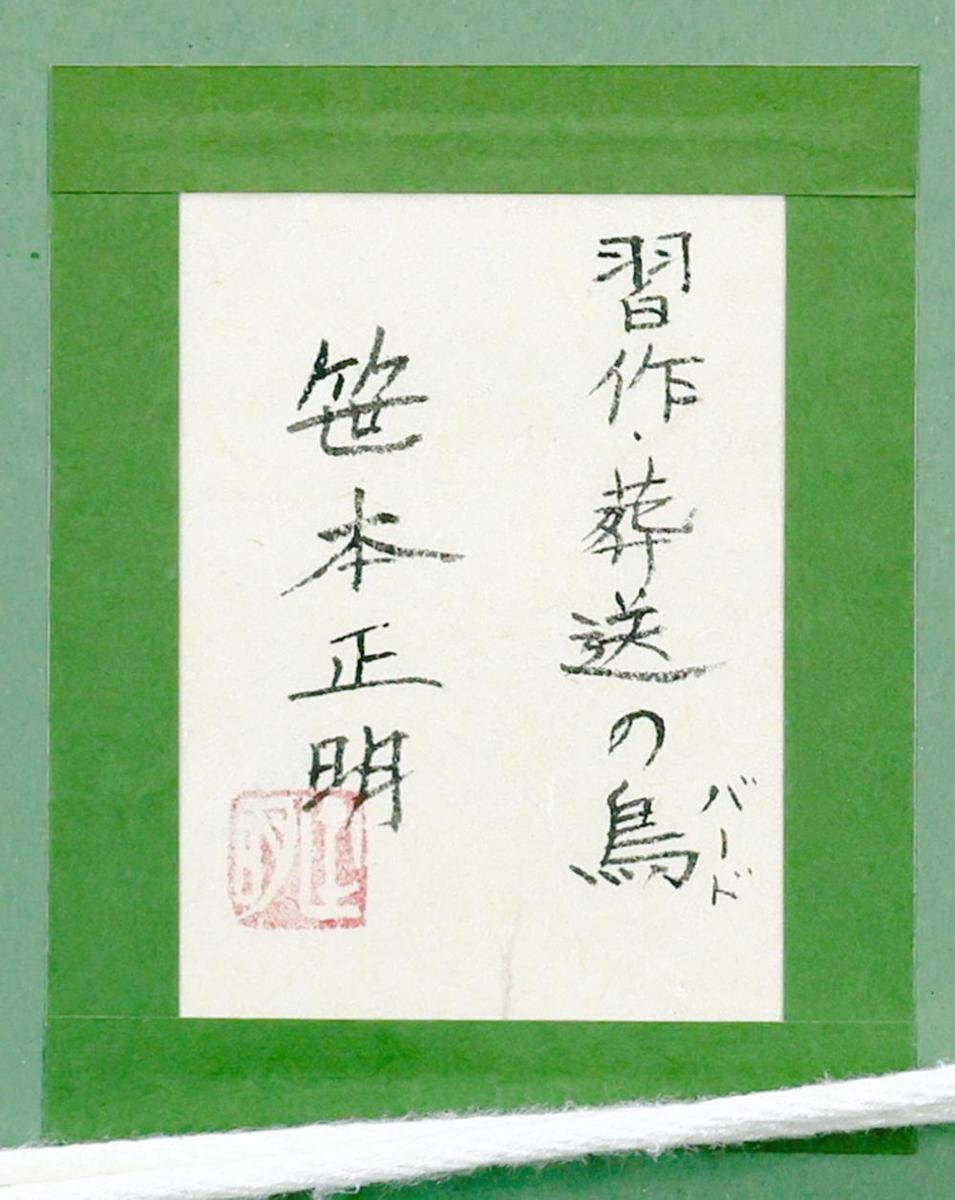 習作・葬送の鳥
バード
笹本正明
正明